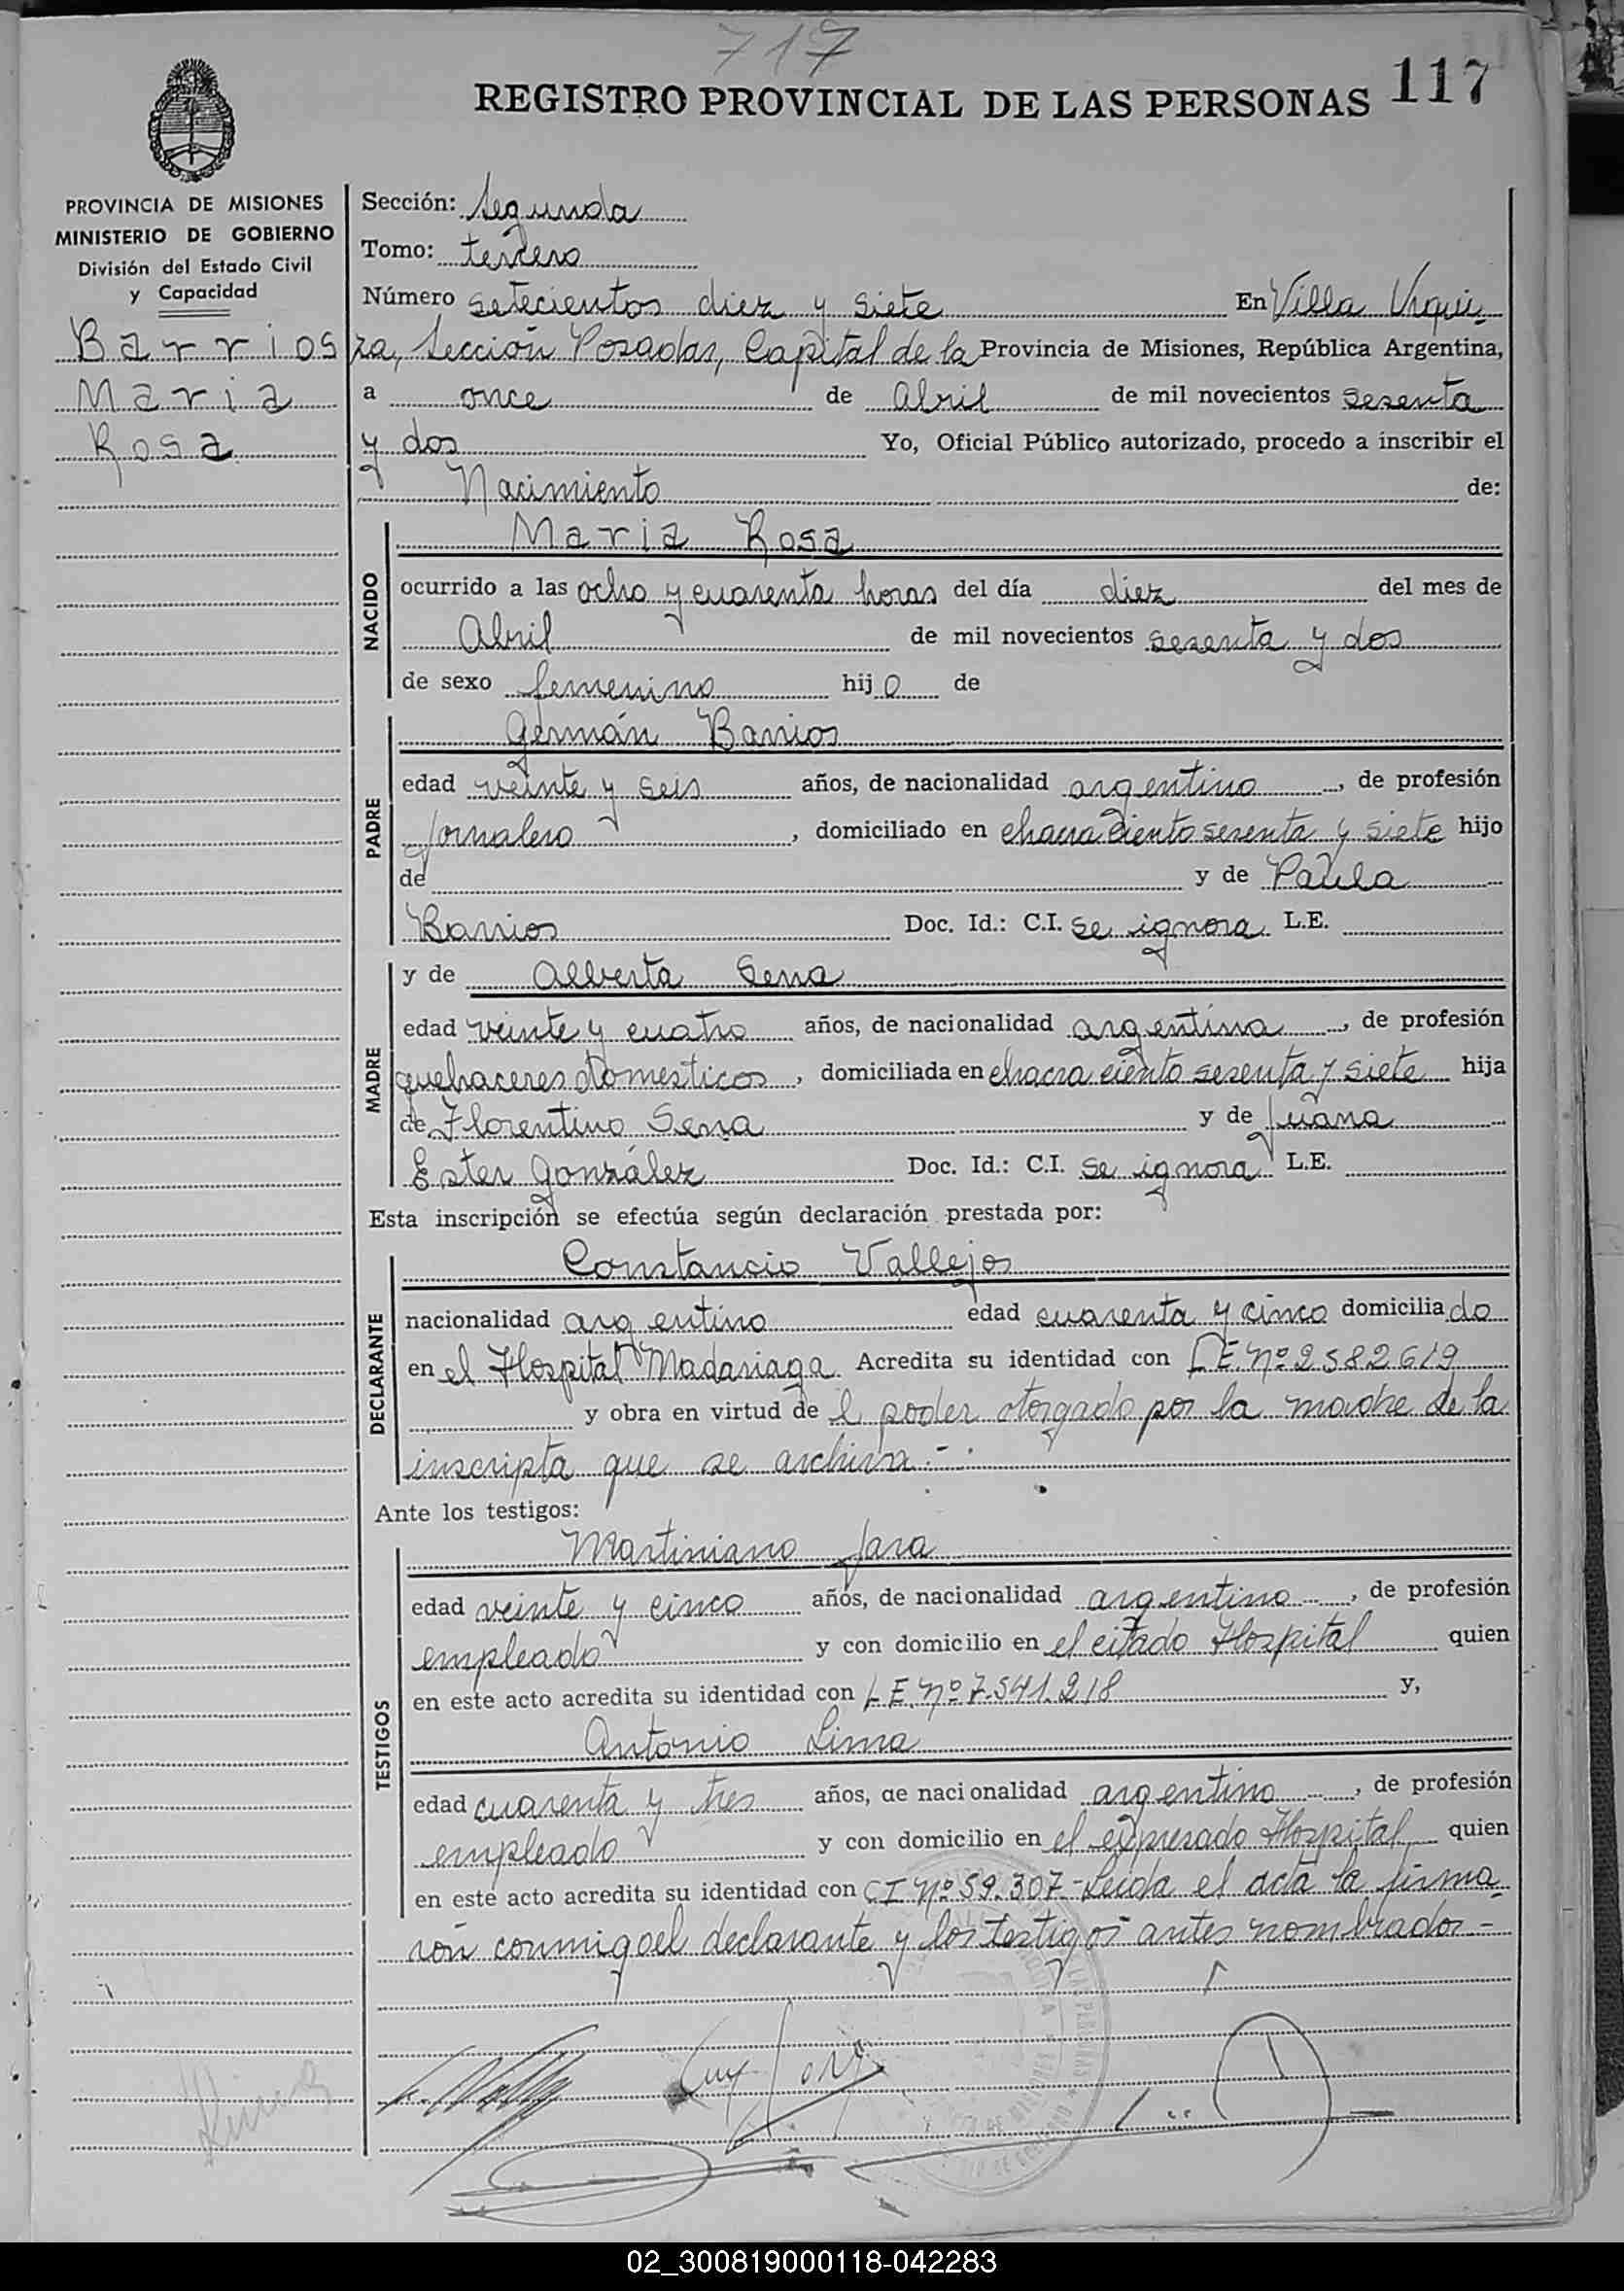 717
REGISTRO PROVINCIAL DE LAS PERSONAS 117
PROVINCIA DE MISIONES
MINISTERIO DE GOBIERNO
División del Estado Civil
y Capacidad
Barrios
Maria
Rosa
Sección: Segunda
Tomo: tercero
Número setecientos diez y siete En Villa Urqui
za, Sección Posadas, Capital de la Provincia de Misiones, República Argentina,
a once de Abril de mil novecientos sesenta
y dos Yo, Oficial Público autorizado, procedo a inscribir el
Nacimiento de:
NACIDO
Maria Rosa
ocurrido a las ocho y cuarenta horas del día diez del mes de
Abril de mil novecientos sesenta y dos
de sexo femenino hijo de
PADRE
Germán Barrios
edad veinte y seis años, de nacionalidad argentino, de profesión
Jornalero, domiciliado en chacra ciento sesenta y siete hijo
de y de Paula
Barrios Doc. Id.: C.I. se ignora L.E.
MADRE
y de Alberta Sena
edad veinte y cuatro años, de nacionalidad argentina, de profesión
quehaceres domesticos, domiciliada en chacra ciento sesenta y siete hija
de Florentino Sena y de Juana
Ester González Doc. Id.: C.I. se ignora L.E.
Esta inscripción se efectúa según declaración prestada por:
DECLARANTE
Constancio Vallejos
nacionalidad argentino edad cuarenta y cinco domiciliado
en el Hospital Madariaga Acredita su identidad con L.E. Nº 2582619
y obra en virtud de l poder otorgado por la madre de la
inscripta que se archiva.-
Ante los testigos:
TESTIGOS
Martiniano Jara
edad veinte y cinco años, de nacionalidad argentino, de profesión
empleado y con domicilio en el citado Hospital quien
en este acto acredita su identidad con L.E. Nº 7.541.218 y,
Antonio Lima
edad cuarenta y tres años, de nacionalidad argentino, de profesión
empleado y con domicilio en el expresado Hospital quien
en este acto acredita su identidad con C.I. Nº 59.307.- Leida el acta la firma
rón conmigo el declarante y los testigos antes nombrados.-
02_300819000118-042283